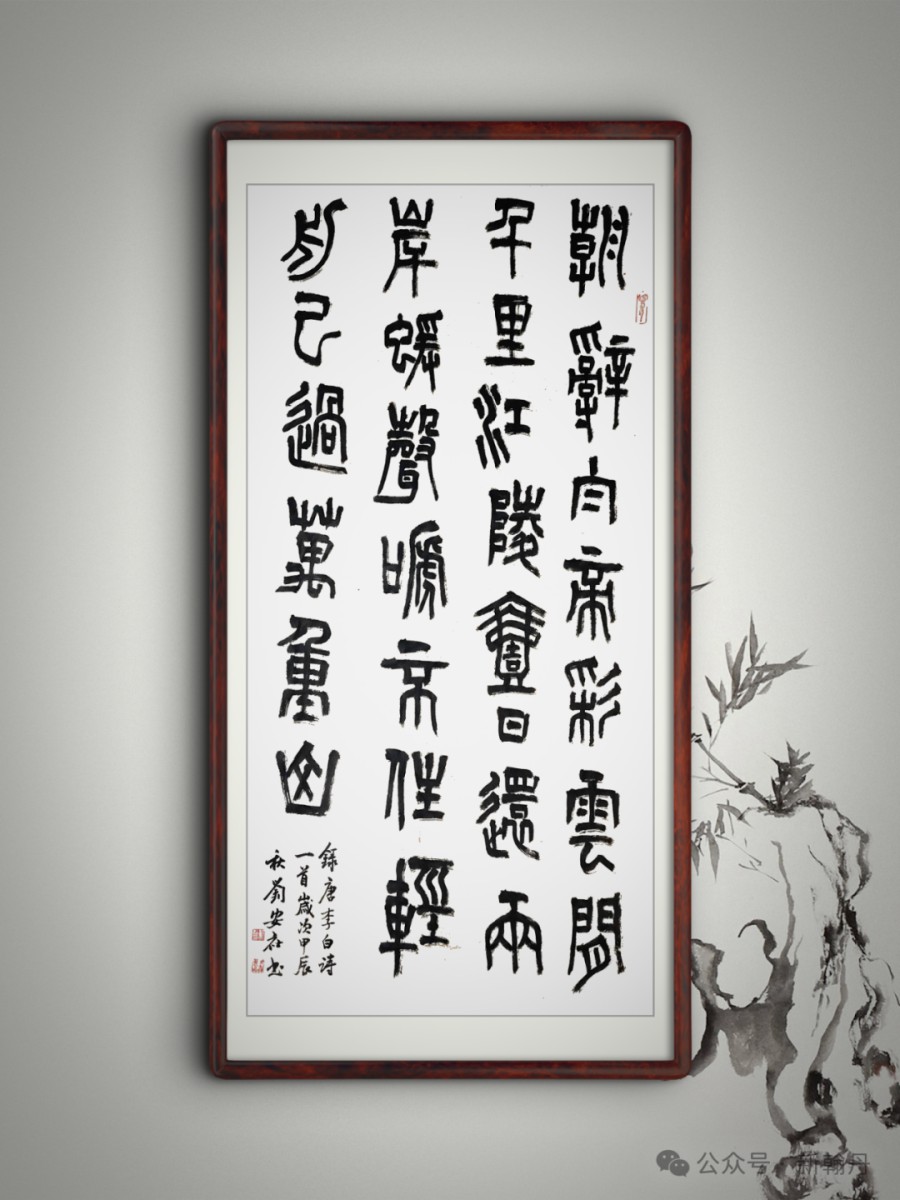 朝辭白帝彩雲間
千里江陵壹日還兩
岸蝯聲嗁不住輕
舟已過萬重山
錄唐李白诗
一首歲次甲辰
秋劉安在书
公众号 · 新翰丹